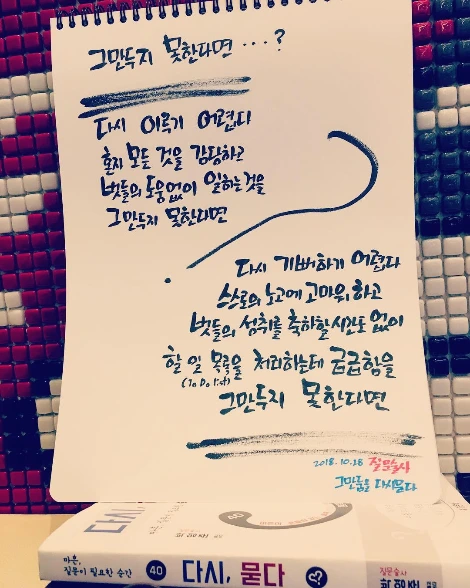 그만두지 못한다면 ···?
다시 이루기 어렵다
혼자 모든 것을 감당하고
벗들의 도움없이 일하는 것을
그만두지 못한다면
다시 기뻐하기 어렵다
스스로의 노고에 고마워 하고
벗들의 성취를 축하할 시간도 없이
할 일 목록을 처리하는데 급급함을
(To Do List)
그만두지 못한다면
2018.10.28 질문술사
그만둠을 다시묻다
다시,
마흔,
질문이 필요한 순간
40
다시, 묻다
질문술사